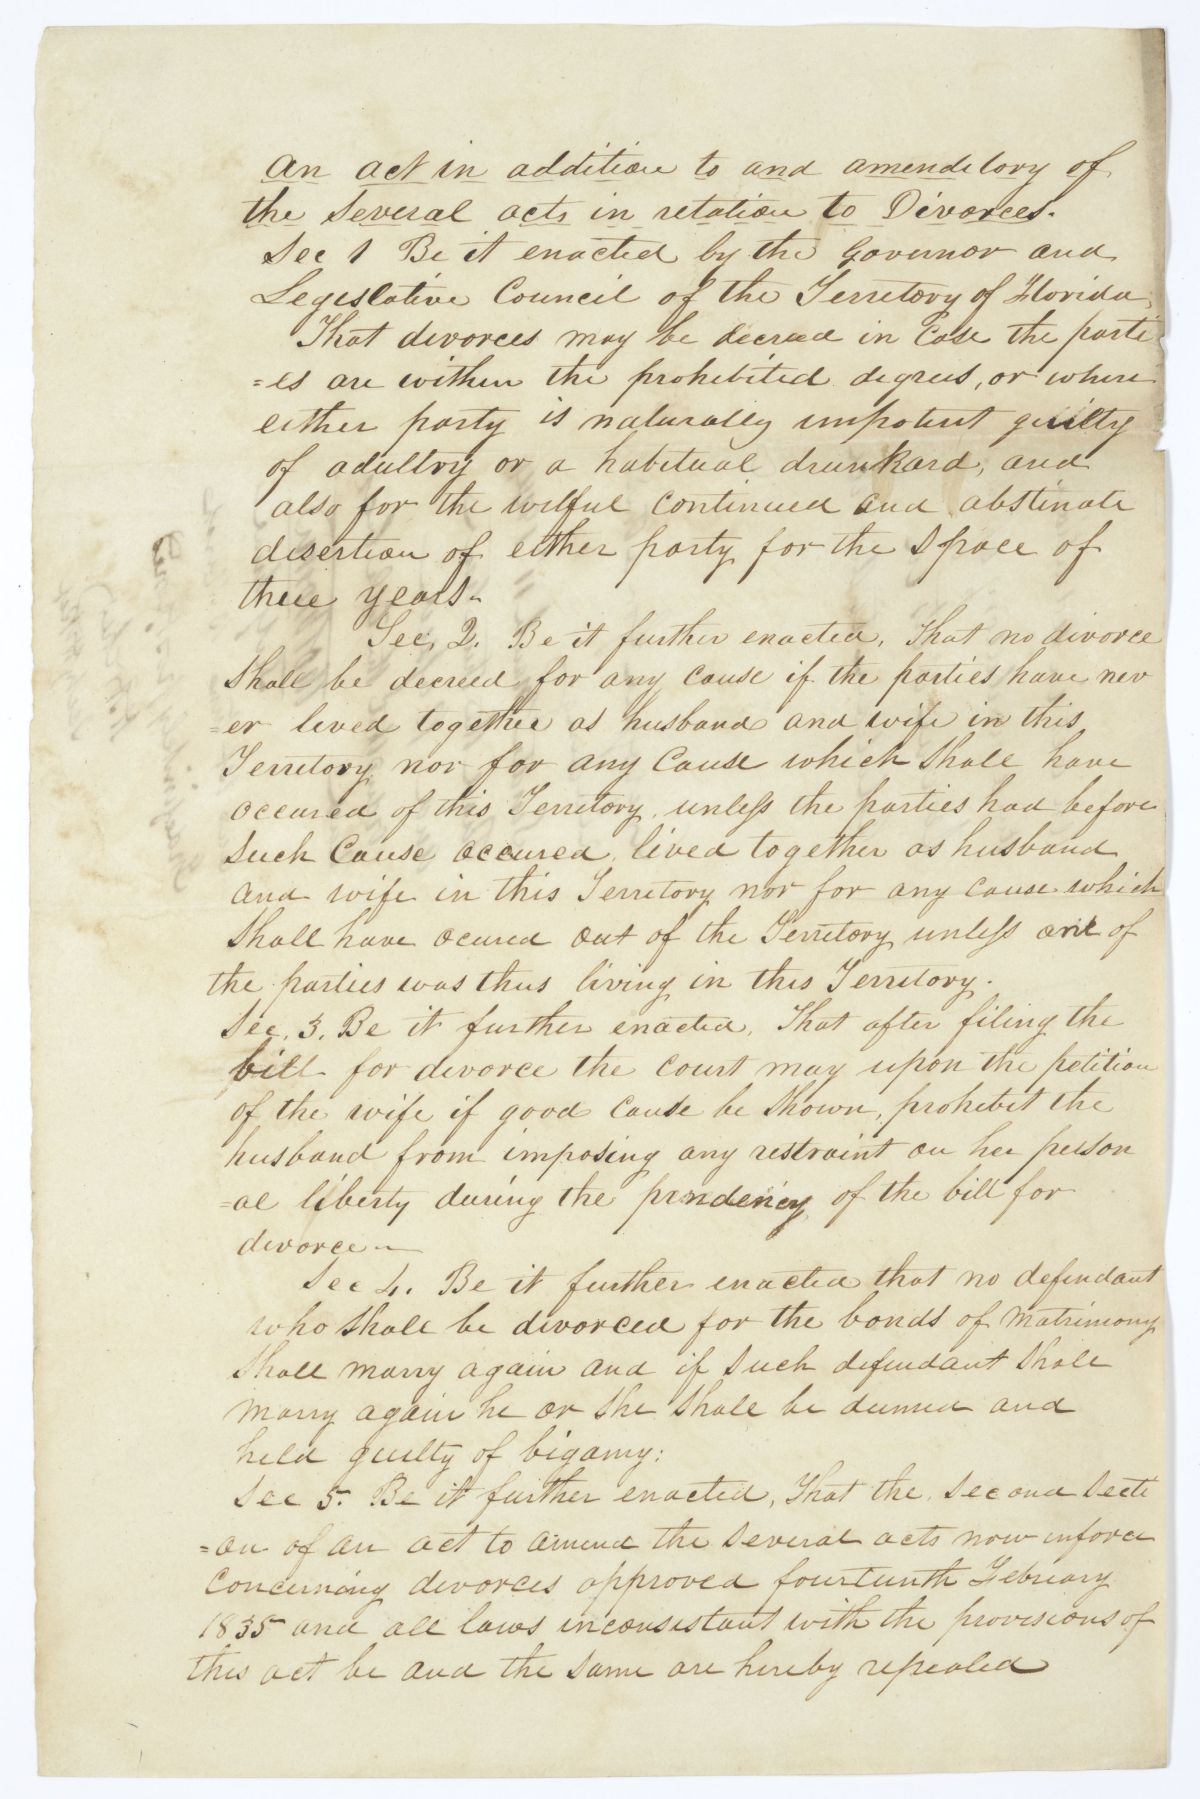 An act in addition to and amenditory of
the several acts in retation to Divorces.
Sec 1 Be it enacted by the Governor and
Legislative Council of the Territory of Florida,
That divorces may be decreed in Case the parti
=es are within the prohibited degrees, or where
either party is naturally impotent guilty
of adultry or a habitual drunkard, and
also for the wilful continued and abstinate
desertion of either party for the space of
three years.
Sec, 2. Be it further enacted, That no divorce
shall be decreed for any cause if the parties have nev
=er lived together as husband and wife in this
Territory nor for any Cause which shall have
occured of this Territory, unless the parties had before
such Cause occured lived together as husband
and wife in this Territory nor for any cause which
shall have ocured out of the Territory unless one of
the parties was thus living in this Territory.
Sec. 3. Be it further enacted, That after filing the
bill for divorce the court may upon the petition
of the wife if good cause be shown, prohibit the
husband from imposing any restraint on her person
=al liberty during the pendency of the bill for
divorce—
Sec 4. Be it further enacted that no defendant
who shall be divorced for the bonds of matrimony
shall marry again and if such defendant shall
marry again he or she shall be deemed and
held guilty of bigamy:
Sec 5. Be it further enacted, That the second secti
=on of an act to amend the several acts now inforce
concerning divorces approved fourteenth February
1835 and all laws inconsistant with the provisions of
this act be and the same are hereby repealed